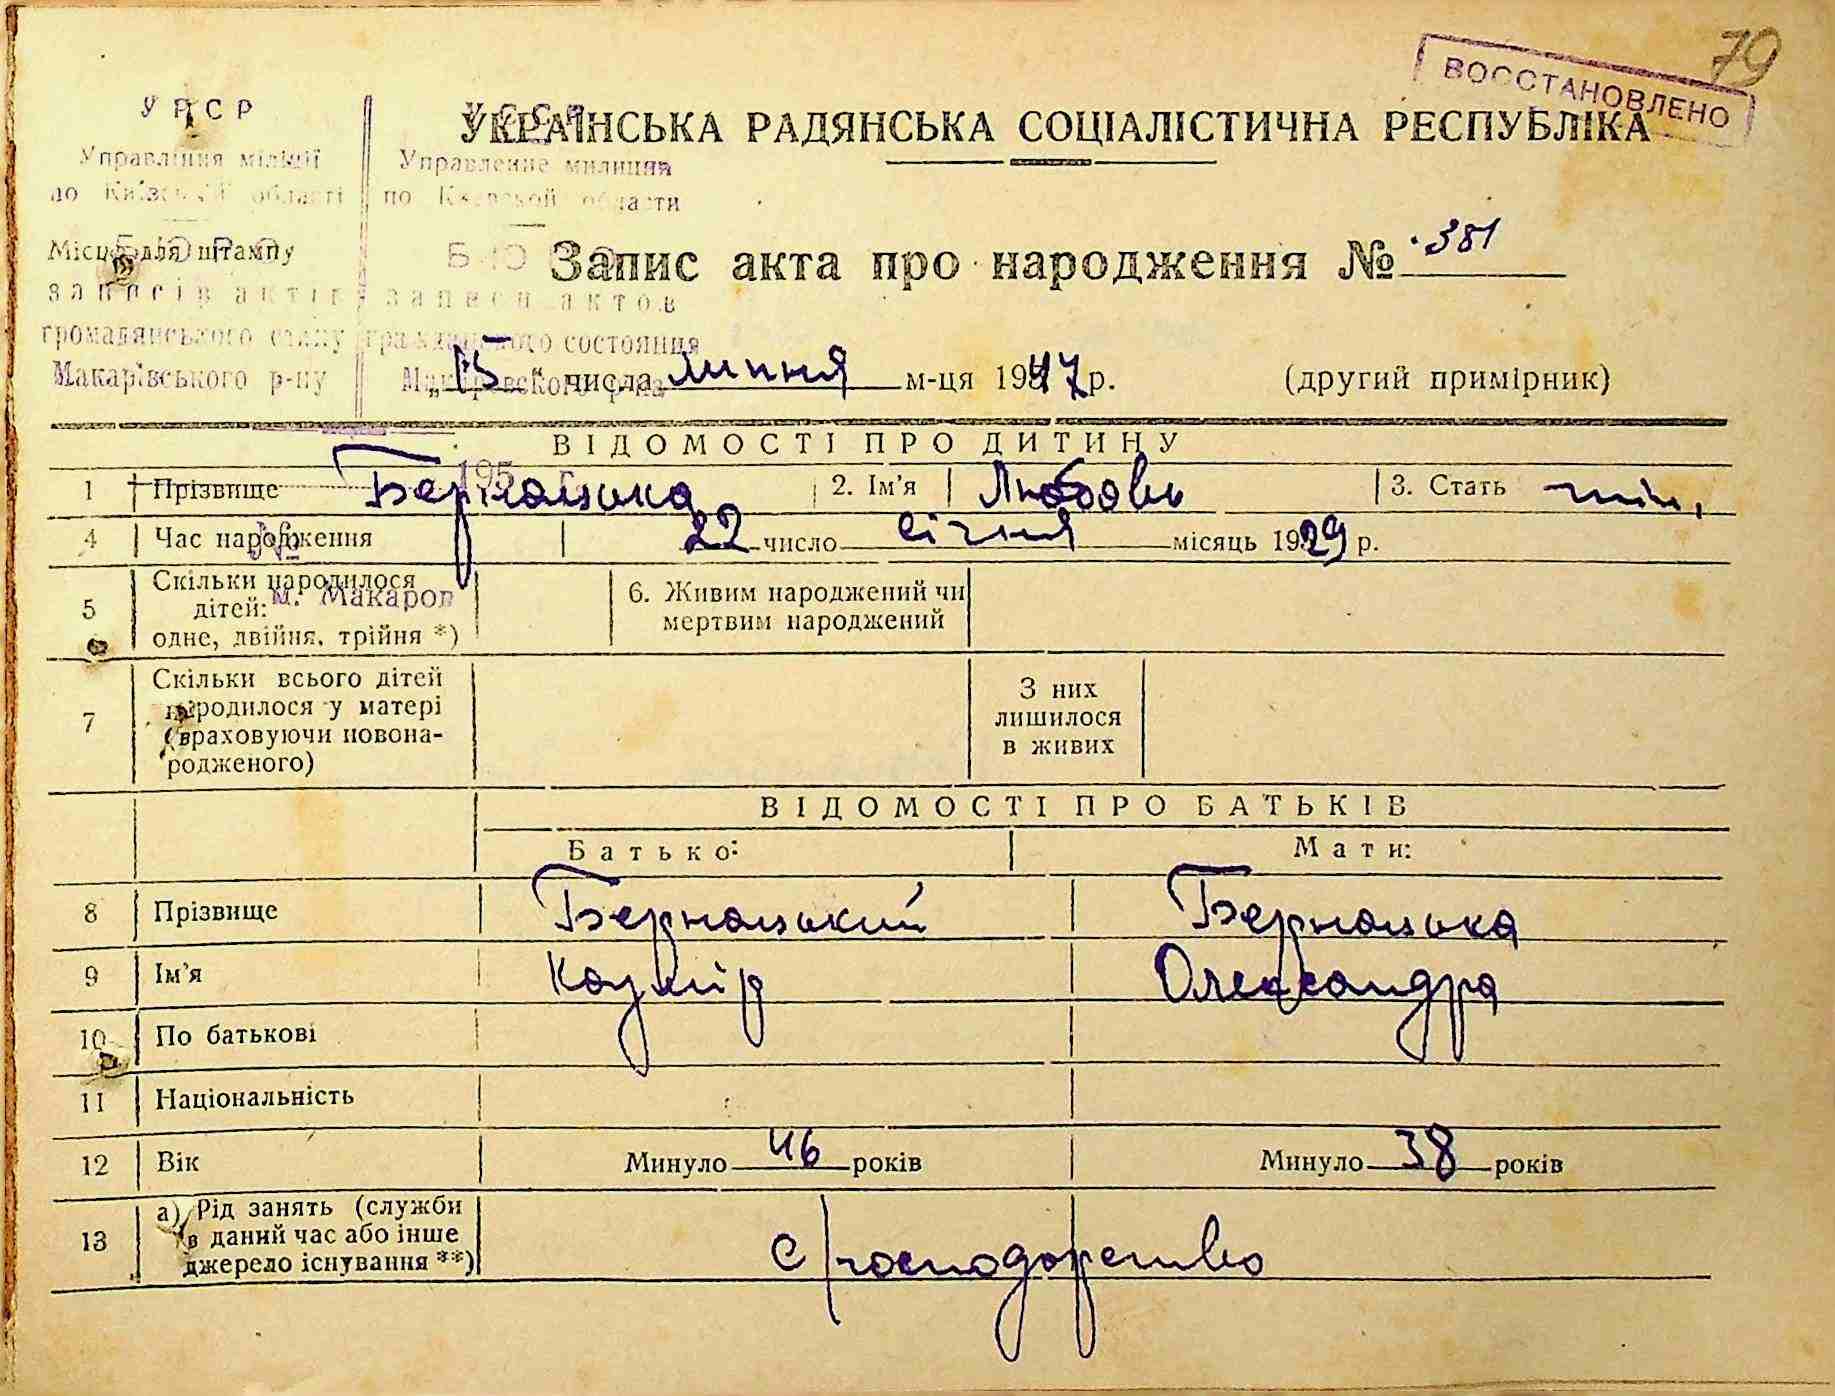 79
ВОССТАНОВЛЕНО
УРСР
УССР
УКРАЇНСЬКА РАДЯНСЬКА СОЦІАЛІСТИЧНА РЕСПУБЛІКА
Управління міліції
Управление милиции
по Київській області
по Киевской области
Місце для штампу
БЮРО
БЮРО
Запис акта про народження № 381
записів актів
записи актов
громадянського стану
гражданского состояния
Макарівського р-ну
Макаровского р-на
„15" числа липня м-ця 1947 р. (другий примірник)
ВІДОМОСТІ ПРО ДИТИНУ
195 г.
1 Прізвище Бернацька 2. Ім'я Любовь 3. Стать жін.
4 Час народження 22 число січня місяць 1929 р.
№
5 Скільки народилося дітей: одне, двійня, трійня *)
м. Макаров
6. Живим народжений чи мертвим народжений
7 Скільки всього дітей народилося у матері (враховуючи новонародженого)
З них лишилося в живих
ВІДОМОСТІ ПРО БАТЬКІВ
Батько: Мати:
8 Прізвище Бернацький Бернацька
9 Ім'я Казмір Олександра
10 По батькові
11 Національність
12 Вік Минуло 46 років Минуло 38 років
13 а) Рід занять (служби в даний час або інше джерело існування **)
с/господорство